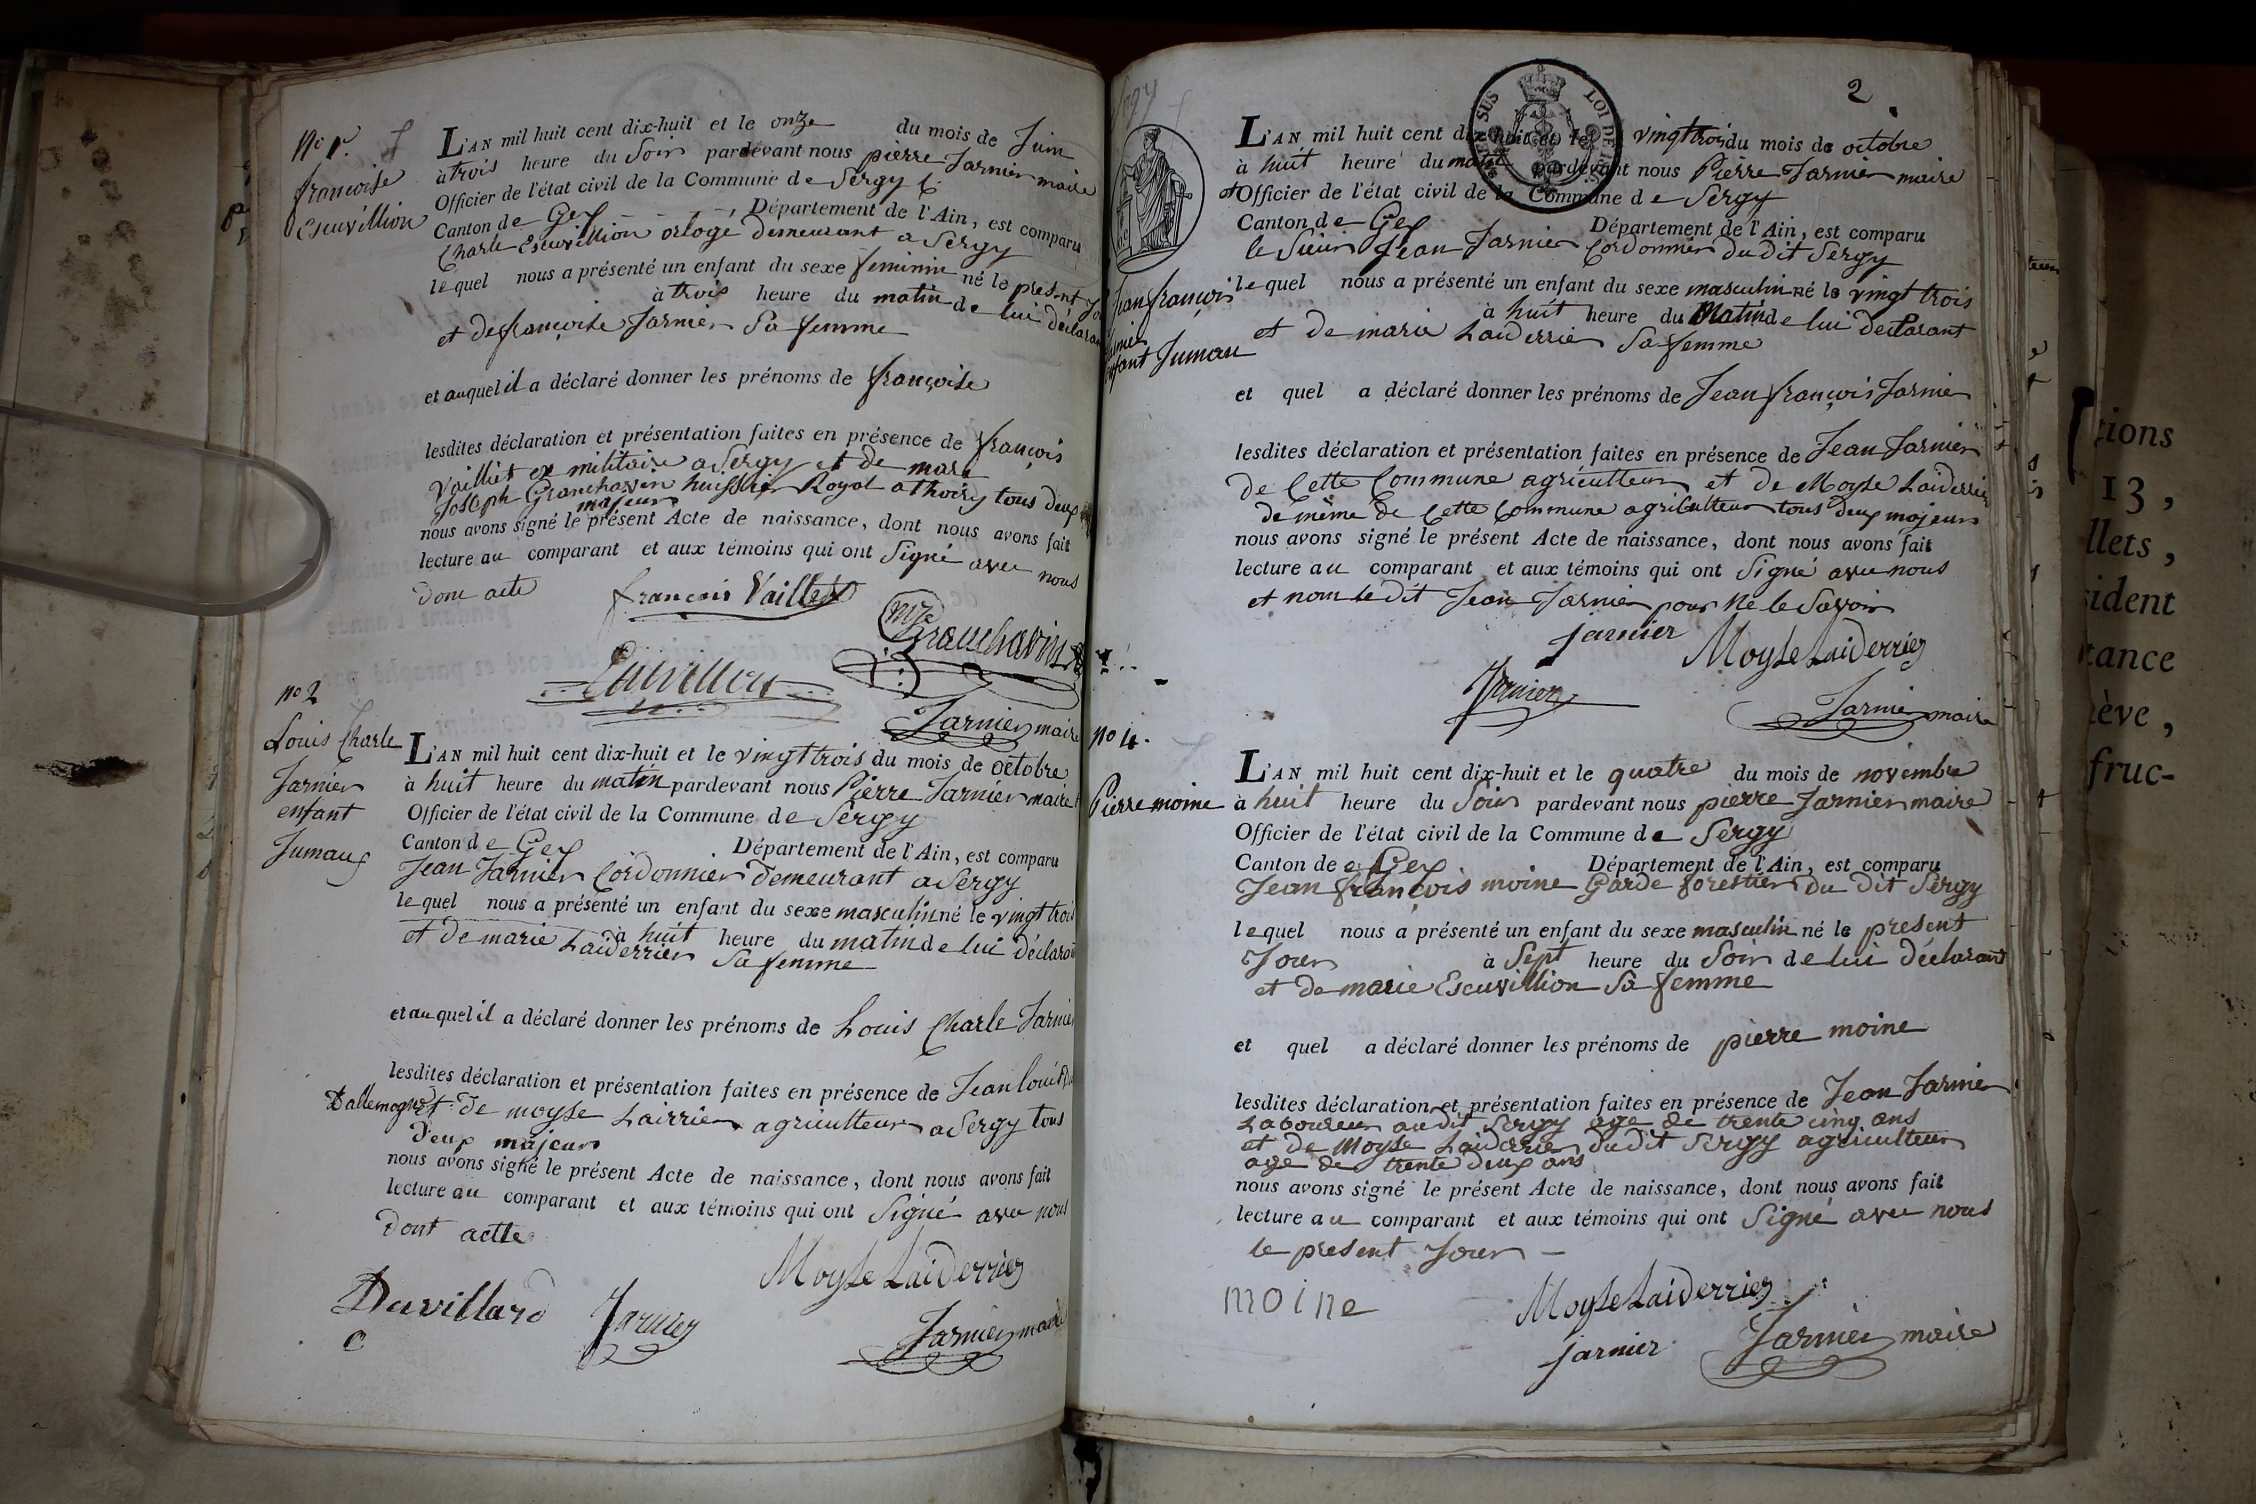 No 1r.
françoise
Escuvillion
L'AN mil huit cent dix-huit et le onze du mois de Juin
à trois heure du Soir pardevant nous pierre Jarnier maire
Officier de l'état civil de la Commune de Sergy
Canton de Gex Département de l'Ain, est comparu
Charle Escuvillion orloge Demeurant a Sergy
lequel nous a présenté un enfant du sexe feminin né le present
à trois heure du matin de lui déclarant
et de françoise Jarnier Sa femme
et auquel il a déclaré donner les prénoms de françoise
lesdites déclaration et présentation faites en présence de françois
Vailliet ex militaire a Sergy et de marc
Joseph Granchavin huissier Royal a thoiry tous deux
majeurs
nous avons signé le présent Acte de naissance, dont nous avons fait
lecture au comparant et aux témoins qui ont Signé avec nous
Donc acte
françois Vaillet
Granchavin
Escuvillion
Jarnier maire
no 2
Louis Charle
Jarnier
enfant
Jumaux
L'AN mil huit cent dix-huit et le vingt trois du mois de octobre
à huit heure du matin pardevant nous Pierre Jarnier maire
Officier de l'état civil de la Commune de Sergy
Canton de Gex Département de l'Ain, est comparu
Jean Jarnier Cordonnier Demeurant a Sergy
lequel nous a présenté un enfant du sexe masculin né le vingt trois
à huit heure du matin de lui déclarant
et de marie Laiderrier Sa femme
et auquel il a déclaré donner les prénoms de Louis Charle Jarnier
lesdites déclaration et présentation faites en présence de Jean louis
Dallemagne et de moyse Lairrier agriculteur a Sergy tous
Deux majeurs
nous avons signé le présent Acte de naissance, dont nous avons fait
lecture au comparant et aux témoins qui ont Signé avec nous
Dont actte
Moyse Laiderrier
Duvillard Jarnier
Jarnier maire
2
L'AN mil huit cent dix-huit et le vingt trois du mois de octobre
à huit heure du matin pardevant nous Pierre Jarnier maire
Officier de l'état civil de la Commune de Sergy
Canton de Gex Département de l'Ain, est comparu
le Sieur Jean Jarnier Cordonnier Du Dit Sergy
Jean françois
Jarnier
enfant Jumau
lequel nous a présenté un enfant du sexe masculin né le vingt trois
à huit heure du Matin de lui Declarant
et de marie Laiderrier Sa femme
et quel a déclaré donner les prénoms de Jean françois Jarnier
lesdites déclaration et présentation faites en présence de Jean Jarnier
De Cette Commune agriculteur et de Moyse Laiderrier
de même De Cette Commune agriculteur tous Deux majeurs
nous avons signé le présent Acte de naissance, dont nous avons fait
lecture au comparant et aux témoins qui ont Signé avec nous
et nom le Dit Jean Jarnier pour Ne le Savoir
jarnier Moyse Laiderrier
Jarnier
Jarnier maire
no 4.
Pierre moine
L'AN mil huit cent dix-huit et le quatre du mois de novembre
à huit heure du Soir pardevant nous pierre Jarnier maire
Officier de l'état civil de la Commune de Sergy
Canton de Gex Département de l'Ain, est comparu
Jean françois moine Garde forestier Du Dit Sergy
lequel nous a présenté un enfant du sexe masculin né le present
Jour à Sept heure du Soir de lui Déclarant
et de marie Escuvillion Sa femme
et quel a déclaré donner les prénoms de pierre moine
lesdites déclaration et présentation faites en présence de Jean Jarnier
Laboureur au dit Sergy age de trente cinq ans
et de Moyse Laiderrier Du dit Sergy agriculteur
age de trente Deux ans
nous avons signé le présent Acte de naissance, dont nous avons fait
lecture au comparant et aux témoins qui ont Signé avec nous
le present Jour
moine Moyse Laiderrier
jarnier Jarnier maire
tions
13,
llets,
sident
tance
ève,
fruc-